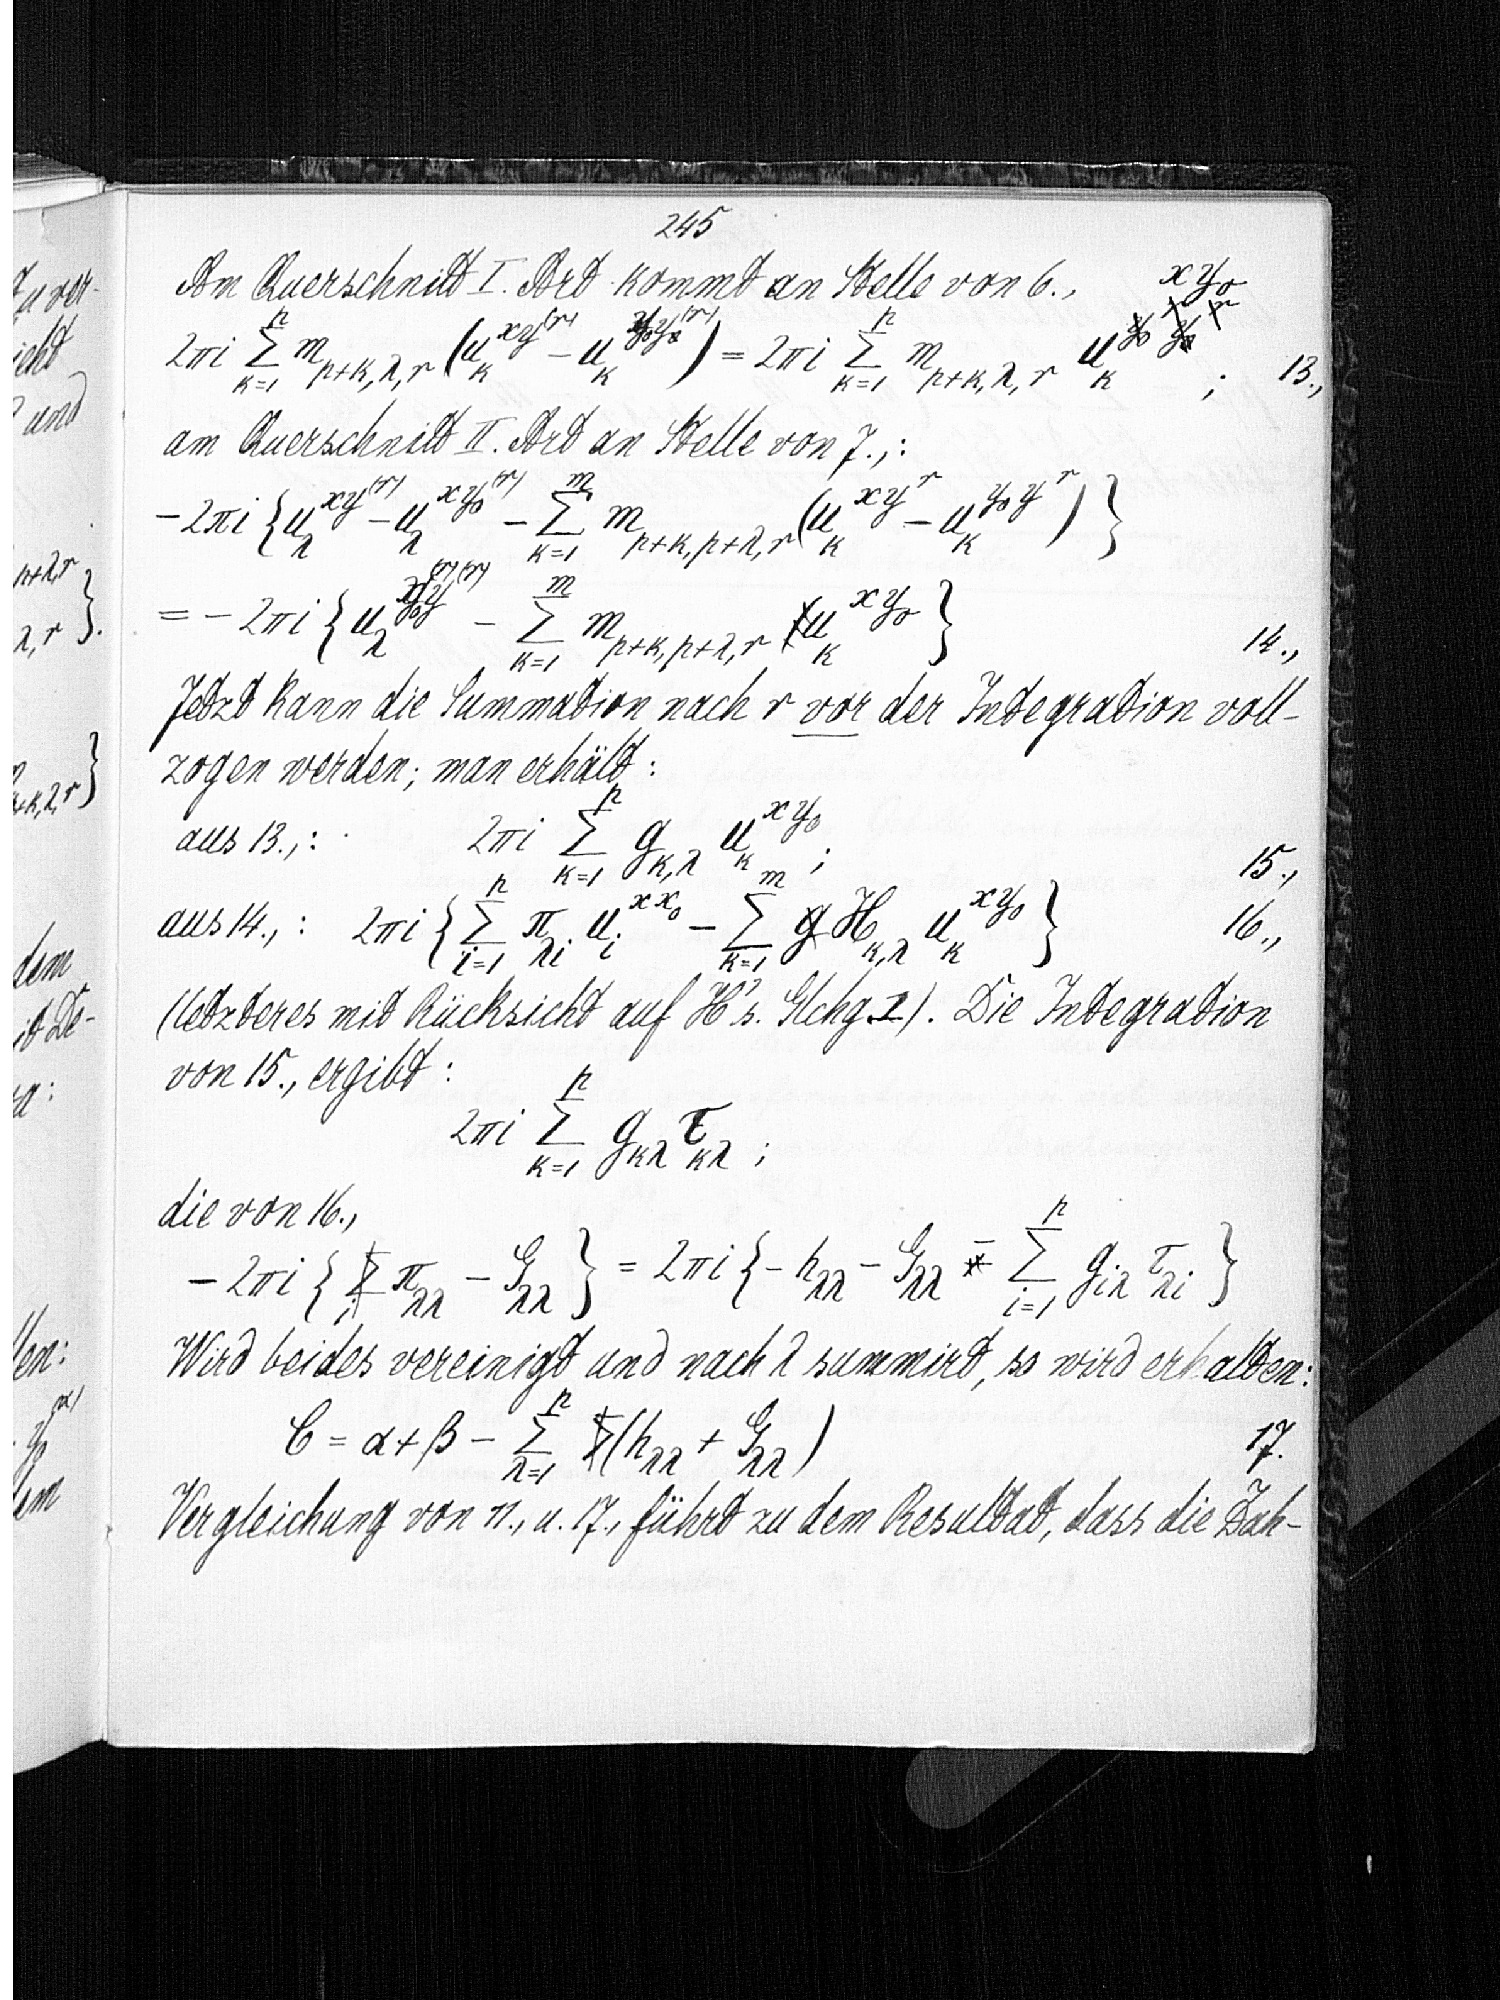 245
Am Querschnitt I. Art kommt an Stelle von 6.,
2πi Σ_{κ=1}^{p} m_{p+κ,λ,r} (u_κ^{xy^{(r)}} − u_κ^{y_0y^{(r)}}) = 2πi Σ_{κ=1}^{p} m_{p+κ,λ,r} u_κ^{xy_0} ; 13.,
am Querschnitt II. Art an Stelle von 7.,:
−2πi {u_λ^{xy^{(r)}} − u_λ^{xy_0^{(r)}} − Σ_{κ=1}^{m} m_{p+κ,p+λ,r} (u_κ^{xy^r} − u_κ^{y_0y^r})}
= −2πi {u_λ^{y_0^{(r)}y^{(r)}} − Σ_{κ=1}^{m} m_{p+κ,p+λ,r} u_κ^{xy_0}} 14.,
Jetzt kann die Summation nach r vor der Integration voll-
zogen werden; man erhält:
aus 13.,: 2πi Σ_{κ=1}^{p} g_{κ,λ} u_κ^{xy_0} ; 15.,
aus 14.,: 2πi {Σ_{i=1}^{p} π_{λi} u_i^{xx_0} − Σ_{κ=1}^{m} H_{κ,λ} u_κ^{xy_0}} 16.,
(letzteres mit Rücksicht auf H's. Glchg. I). Die Integration
von 15., ergibt:
2πi Σ_{κ=1}^{p} g_{κλ} τ_{κλ} ;
die von 16.,
−2πi {π_{λλ} − G_{λλ}} = 2πi {−h_{λλ} − G_{λλ} − Σ_{i=1}^{p} g_{iλ} τ_{λi}}
Wird beides vereinigt und nach λ summirt, so wird erhalten:
C = α + β − Σ_{λ=1}^{p} (h_{λλ} + G_{λλ}) 17.
Vergleichung von 11., u. 17., führt zu dem Resultat, dass die Zah-